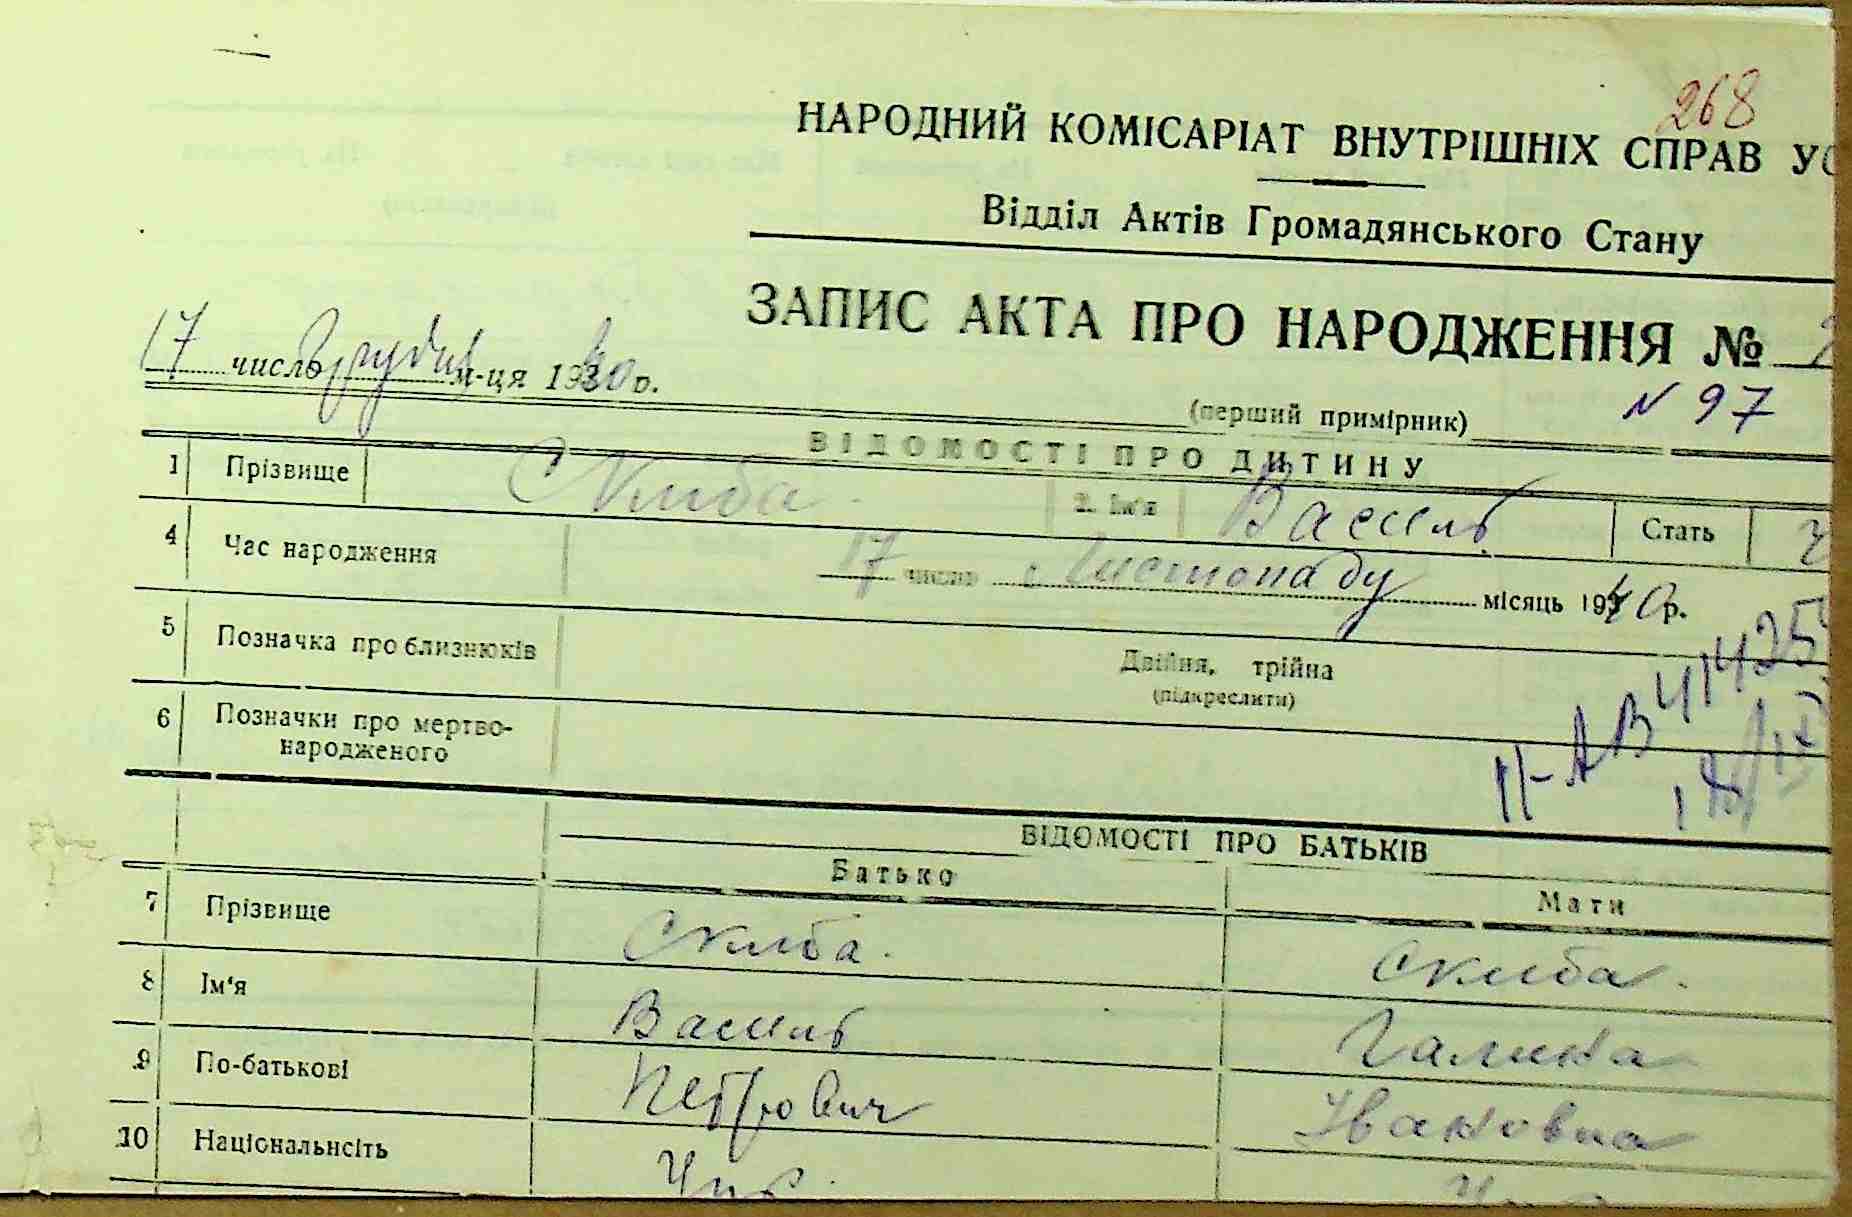 268
НАРОДНИЙ КОМІСАРІАТ ВНУТРІШНІХ СПРАВ УС
Відділ Актів Громадянського Стану
ЗАПИС АКТА ПРО НАРОДЖЕННЯ №
17 число грудня м-ця 1940 р.
(перший примірник) N 97
ВІДОМОСТІ ПРО ДИТИНУ
1 Прізвище Скиба. 2. Ім'я Василь Стать ч
4 Час народження 17 число Листопаду місяць 1940 р.
5 Позначка про близнюків Двійня, трійна
(підкреслити)
6 Позначки про мертво-
народженого
II-АВ 414425
ВІДОМОСТІ ПРО БАТЬКІВ
Батько Мати
7 Прізвище Скиба. Скиба.
8 Ім'я Василь Галина
9 По-батькові Петрович Івановна
10 Національнсіть Укр.